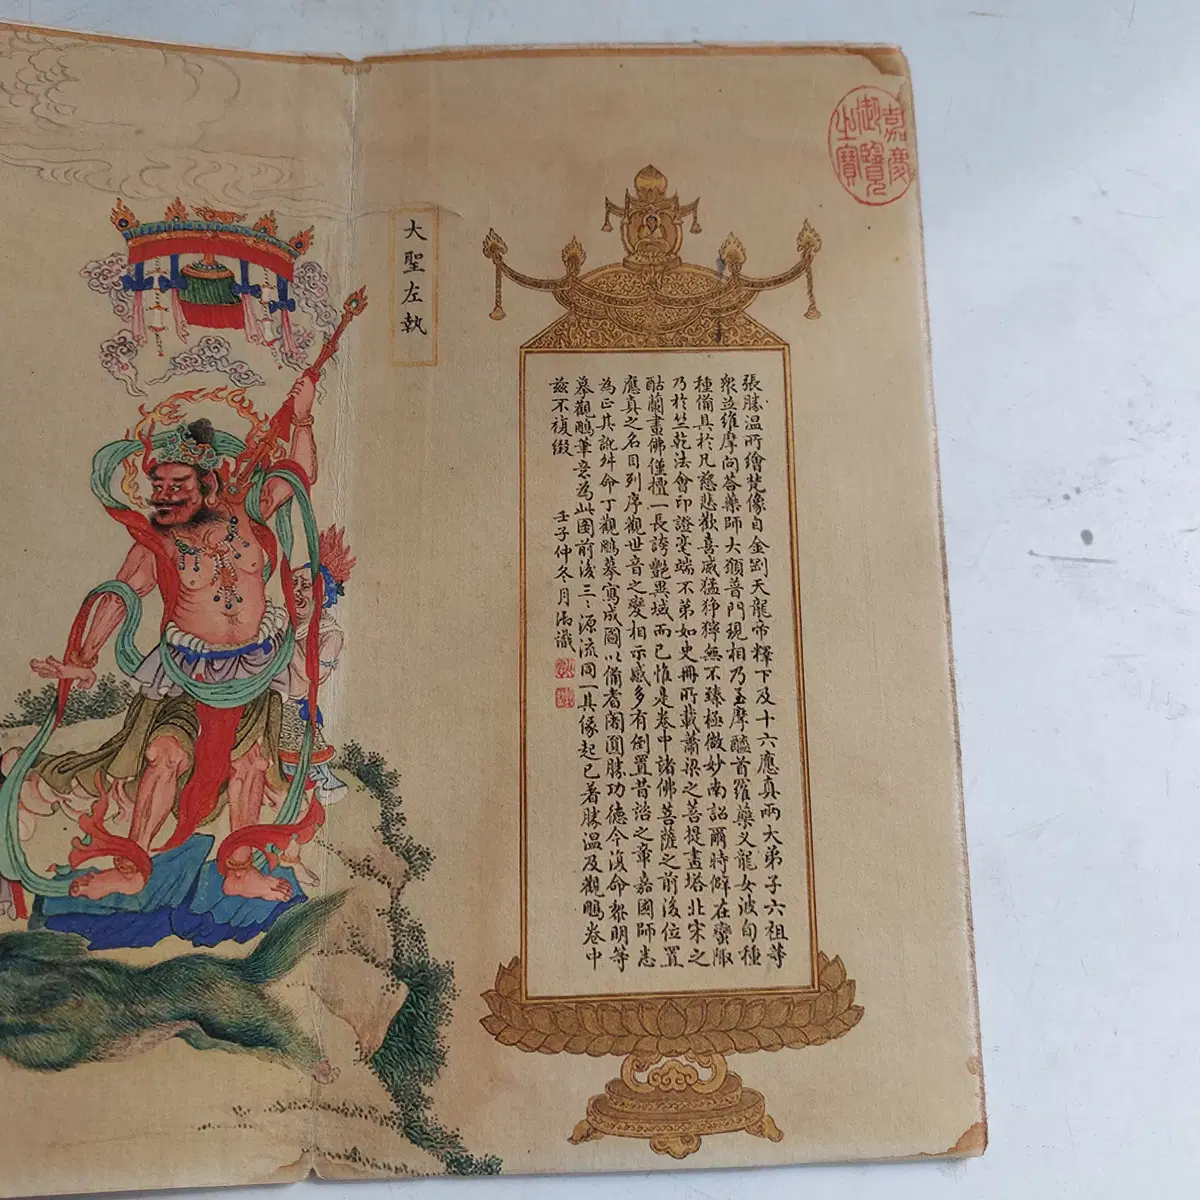 嘉慶御覽之寶
張勝温所繪梵像自金剛天龍帝釋下及十六應真兩大弟子六祖等
衆並維摩問荅藥師大願普門現相乃至摩醯首羅藥叉龍女波旬種
種備具於凡慈悲歡喜威猛猙獰無不臻極微妙南詔爾時僻在蠻陬
乃於竺乾法會印證毫端不弟如史冊所載蕭梁之菩提畫塔北宋之
酤蘭畫佛僅擅一長誇艷異域而已惟是卷中諸佛菩薩之前後位置
應真之名目列序觀世音之變相示感多有倒置昔詒之章嘉國師悉
為正其訛舛命丁觀鵬摹寫成圖以備耆闍圓勝功德今復命黎明等
摹觀鵬筆意為此圖前後三〻源流同一具緣起已著勝温及觀鵬卷中
茲不複綴 壬子仲冬月御識
大聖左執